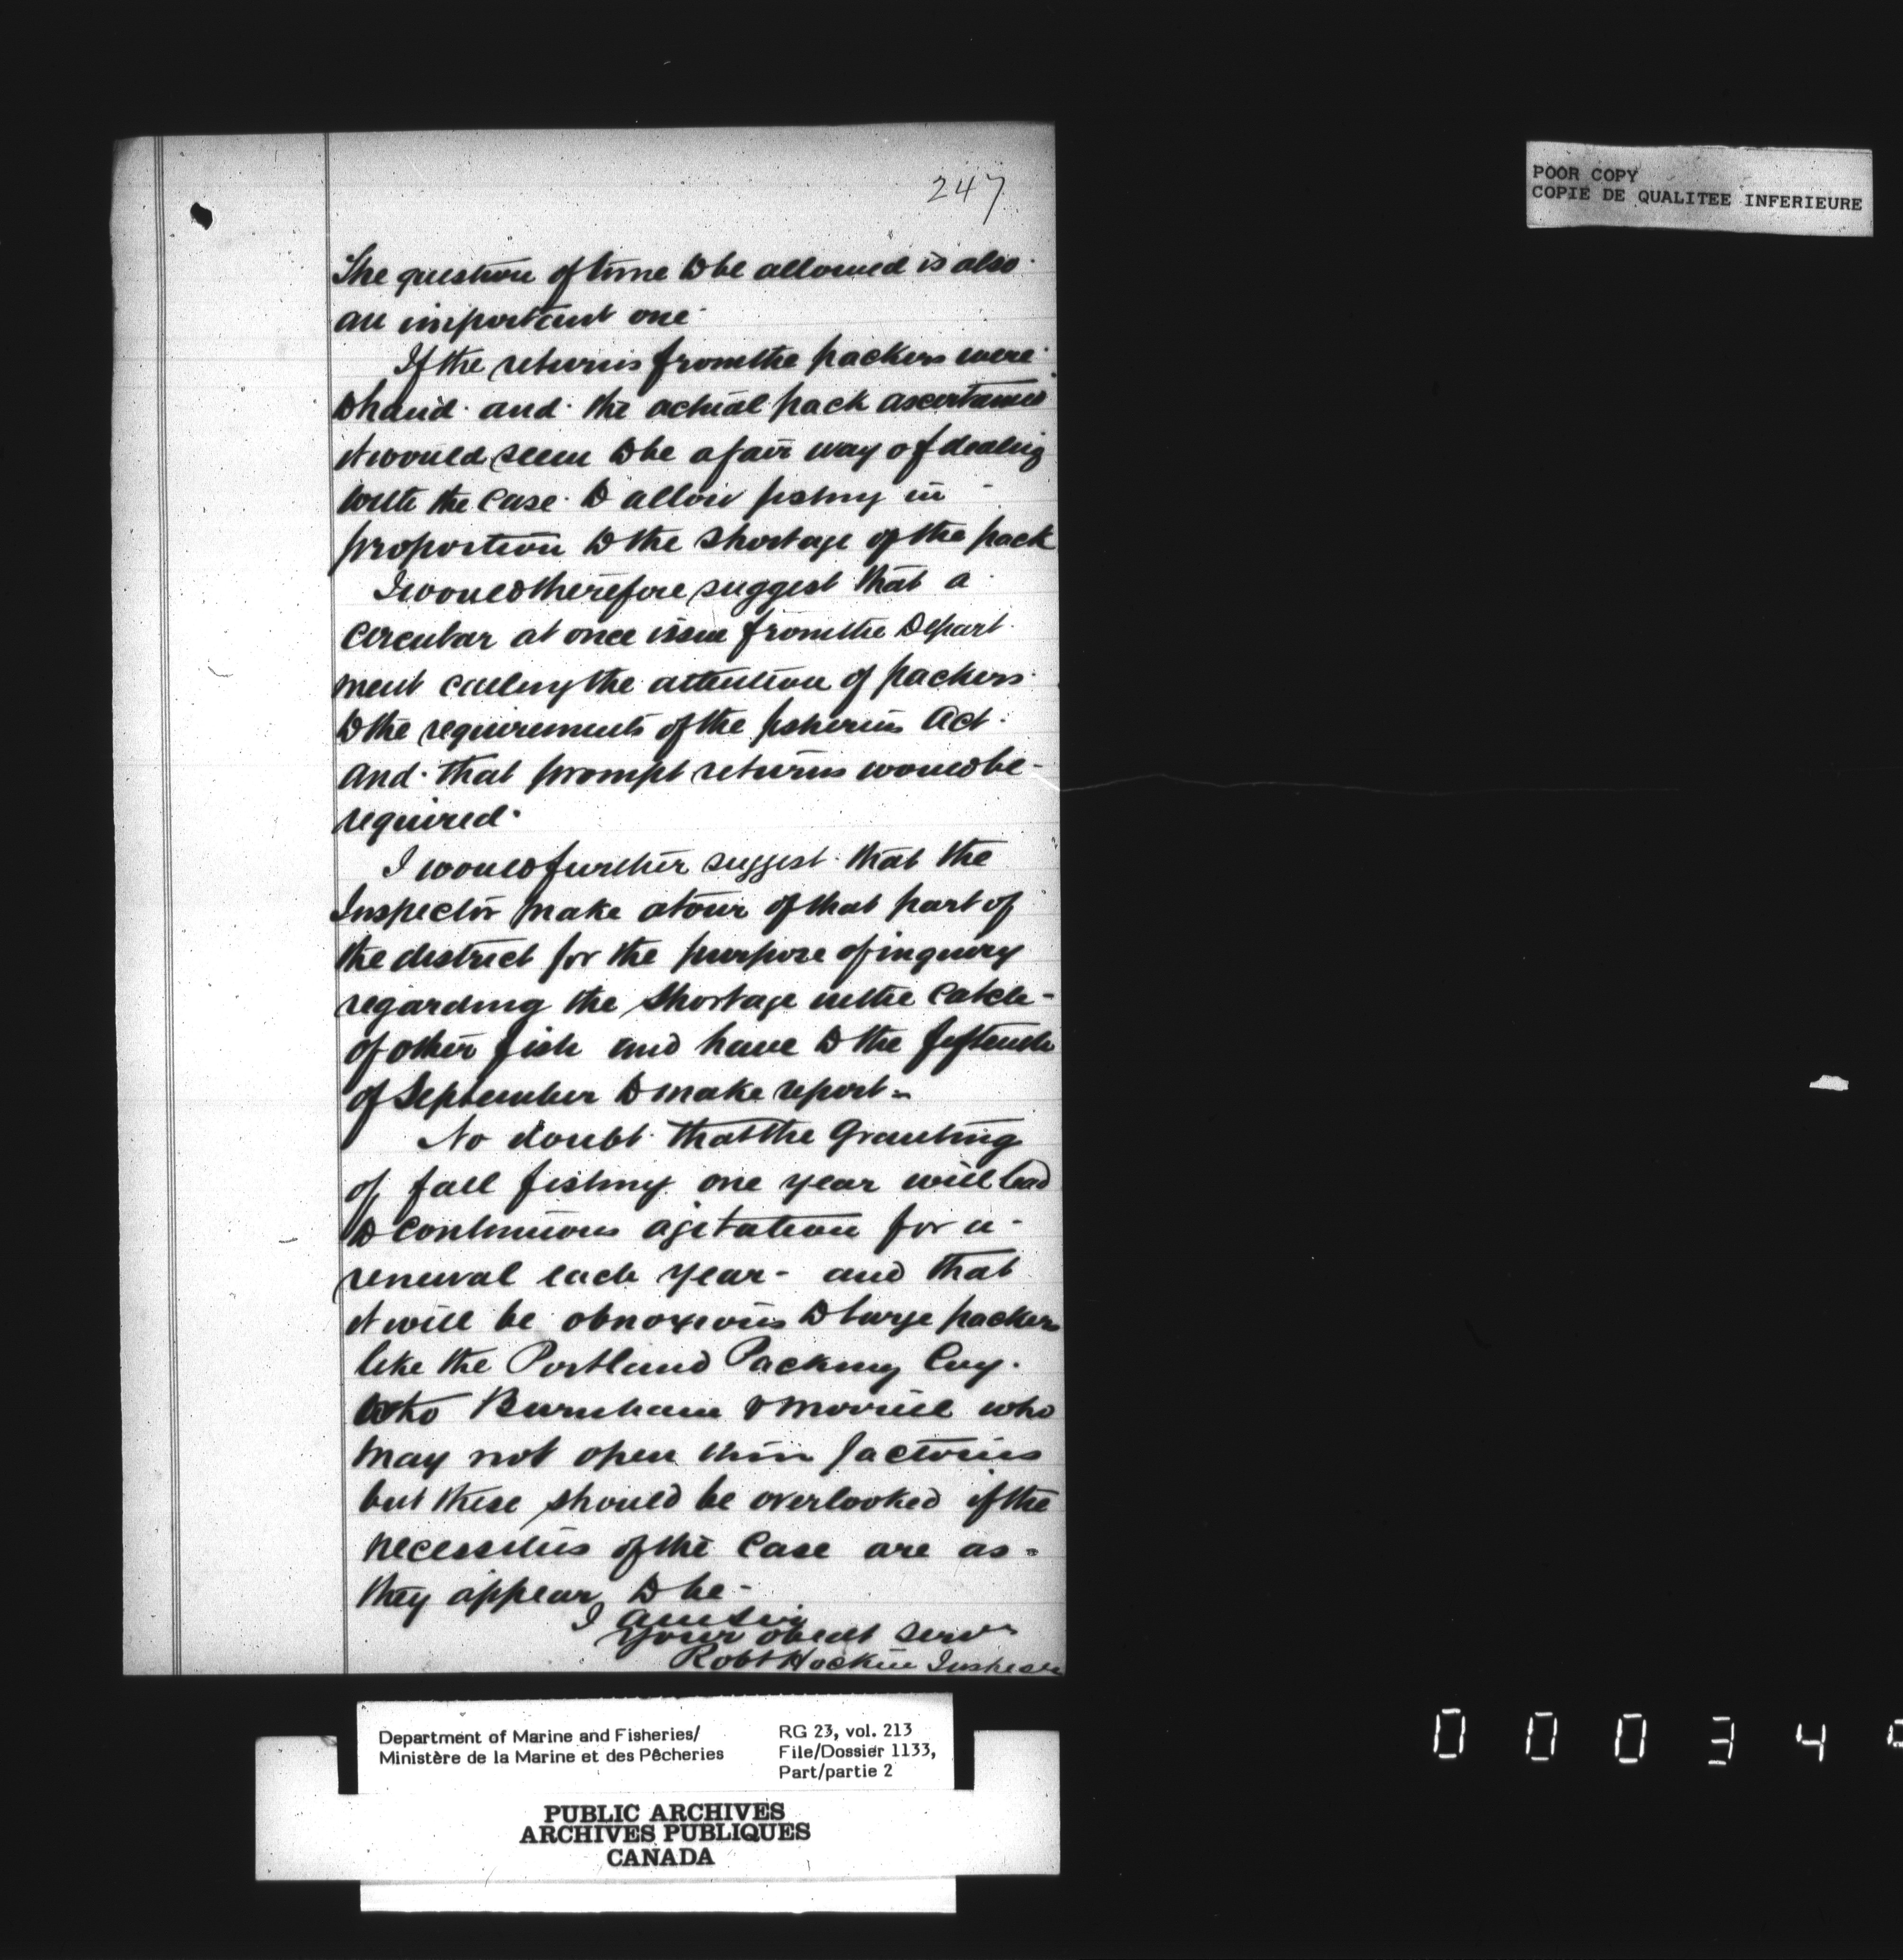 247
POOR COPY
COPIE DE QUALITEE INFERIEURE
The question of time to be allowed is also
an important one
If the returns from the packers were
to hand and the actual pack ascertained
it would seem to be a fair way of dealing
with the case to allow fishing in
proportion to the shortage of the pack
I would therefore suggest that a
circular at once issue from the Depart
ment calling the attention of packers
to the requirements of the fisheries Act
and that prompt returns would be
required
I would further suggest that the
Inspector make a tour of that part of
the district for the purpose of inquiry
regarding the shortage in the catch
of other fish and have to the fifteenth
of September to make report
No doubt that the Granting
of fall fishing one year will lead
to continuous agitation for a
renewal each year - and that
it will be obnoxious to large packers
like the Portland Packing Coy.
Burnham & Morrill who
may not open their factories
but these should be overlooked if the
necessities of the case are as
they appear to be -
I am Sir
Your obedt serv
Robt Hockin Inspector
Department of Marine and Fisheries/
Ministère de la Marine et des Pêcheries
RG 23, vol. 213
File/Dossier 1133,
Part/partie 2
PUBLIC ARCHIVES
ARCHIVES PUBLIQUES
CANADA
0 0 0 3 4